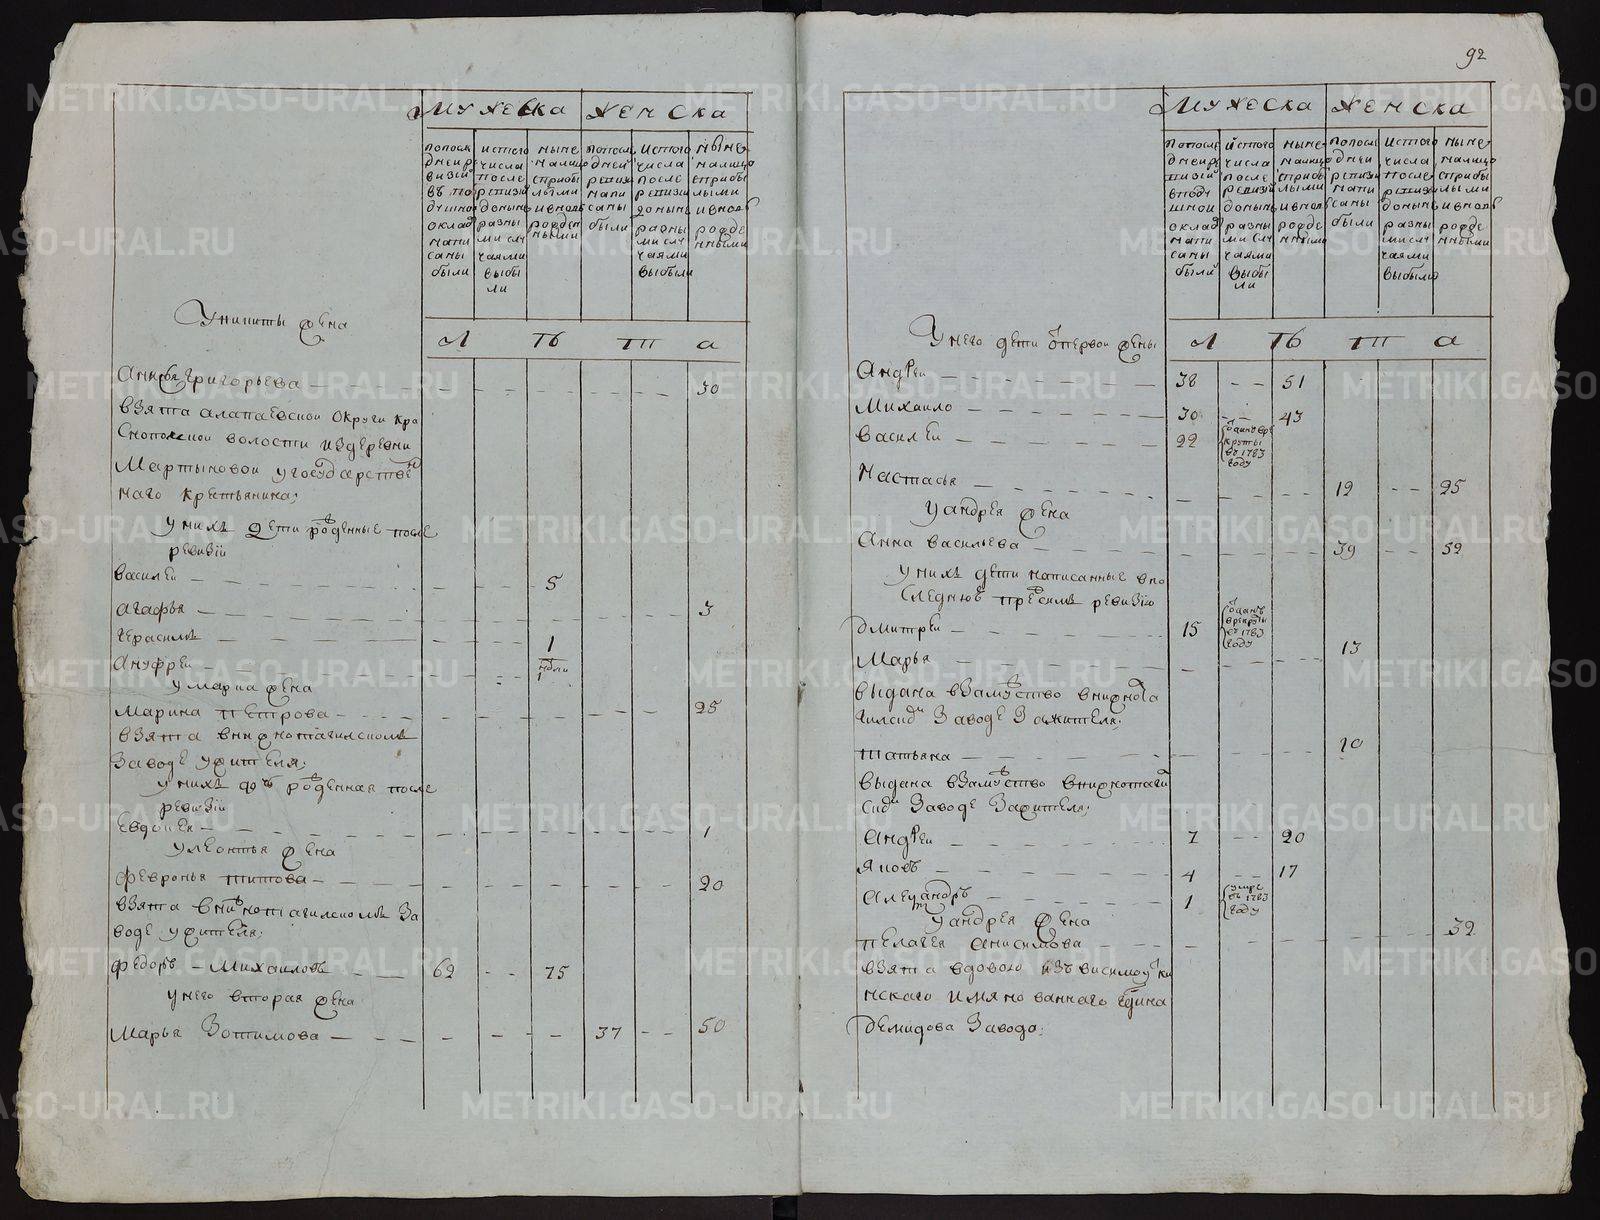 92
Мужеска Женска
по послѣдней ревизіи въ подушной окладъ написаны были
ис того числа после ревизіи доныне разными случаями выбыли
ныне на лицо с прибылыми и вновь рожденными
по послѣдней ревизіи написаны были
Ис того числа после ревизіи доныне разными случаями выбыли
ныне на лицо с прибылыми и вновь рожденными
У никиты жена
Л ѣ т а
Анна григорьева 30
взята алапаевской округи кра
снопольской волости из деревни
Мартыновой у государствен
наго крестьянина;
У нихъ дети рожденные после
ревизіи
василей 5
агафья 3
герасимъ 1
Ануфрей недели 1
У марка жена
Марина петрова 25
взята в нижнотагильскомъ
заводе у жителя;
У нихъ дочь рожденная после
ревизіи
Евдокея 1
У леонтья жена
Февронья титова 20
взята в нижнотагильскомъ за
воде у жителя;
Федоръ Михаиловъ 62 75
У него вторая жена
Марья Зотимова 37 50
Мужеска Женска
по последней ревизіи в подушной окладъ написаны были
ис того числа после ревизіи доныне разными случаями выбыли
ныне на лицо с прибылыми и вновь рожденными
по последней ревизіи написаны были
ис того числа после ревизіи доныне разными случаями выбыли
ныне на лицо с прибылыми и вновь рожденными
У него дети от первой жены
Л ѣ т а
Андрей 38 51
Михаило 30 43
василей 22 отданъ в рекруты въ 1783 году
Настасья 12 25
У андрея жена
Анна васильева 39 52
У нихъ дети написанные в по
следнюю пред симъ ревизію
Дмитрей 15 отданъ в рекруты въ 1783 году
Марья 13
выдана в замужство в нижнота
гилской заводе за жителя;
татьяна 10
выдана в замужство в нижнотаги
лской заводе за жителя;
Андрей 7 20
Яковъ 4 17
Александръ 1 умре въ 1783 году
У андрея жена
пелагея анисимова 32
взята вдовою изъ висимоутки
нскаго имянованнаго
Демидова завода;